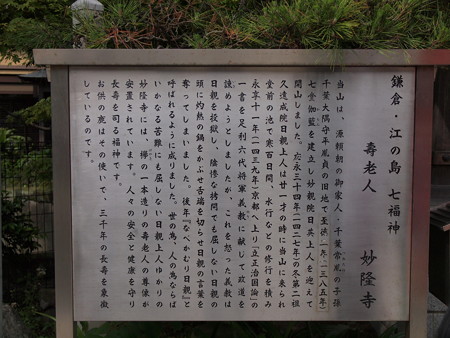 鎌倉・江の島 七福神
壽老人 妙隆寺
当山は、源頼朝の御家人・千葉常胤の子孫
千葉大隅守平胤貞の旧地て至徳二年(一三八五年)
七堂伽藍を建立し妙親院日英上人を迎えて
開山しました。応永三十四年(一四二七年)の冬第二祖
久遠成院日親上人は廿一才の時に当山に来られ
堂前の池で寒百日間、水行などの修行を積み
永享十一年(一四三九年)京都へ上り「立正治国論」の
一書を足利六代将軍義教に献じて政道を
諌めようとしましたが、これを怒った義教は
日親を投獄し、陰惨な拷問でも屈しない日親の
頭に灼熱の鍋をかぶせ舌端を切らせ日親の言葉を
奪ってしまいました。後年『なべかむり日親』と
呼ばれるように成りました。世の為、人の為ならば
いかなる苦難にも屈しない日親上人ゆかりの
妙隆寺には、欅の一本造りの壽老人の尊像が
安置されています。人々の安全と健康を守り
長寿を司る福神です。
お供の鹿はその使いで、三千年の長寿を象徴
しているのです。